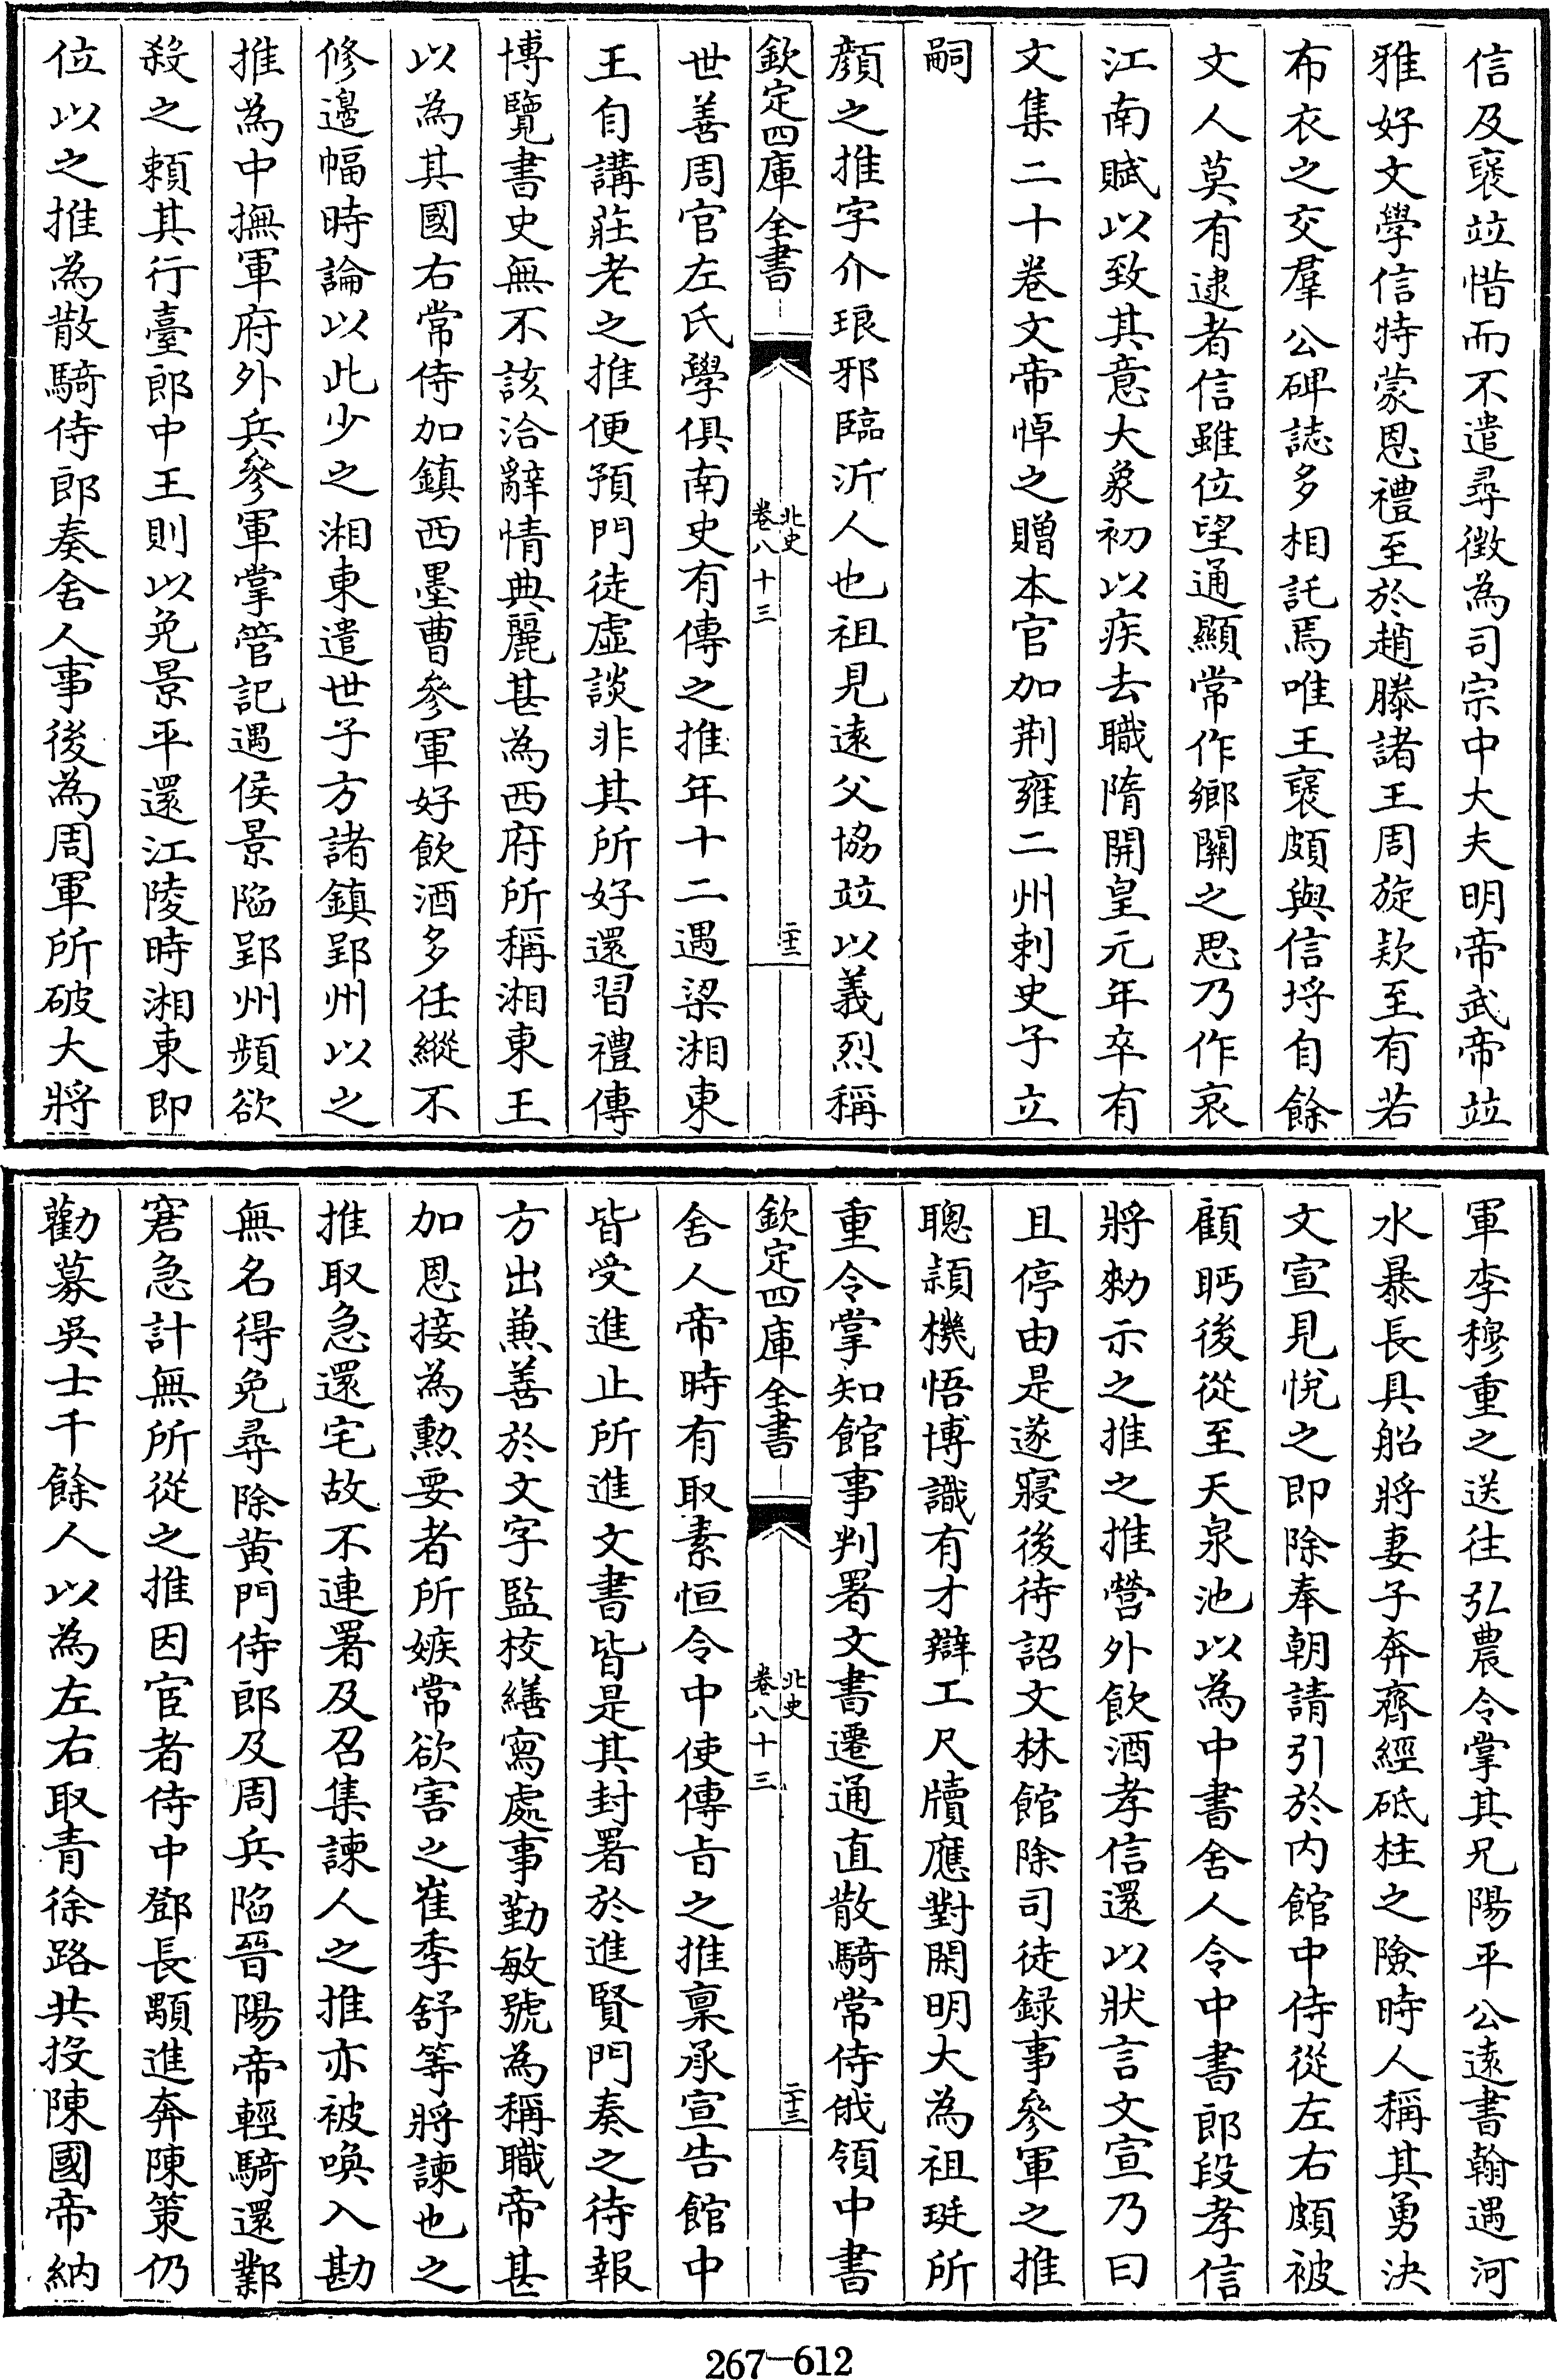 信及襃竝惜而不遣尋徴為司宗中大夫明帝武帝竝
雅好文學信特蒙恩禮至於趙滕諸王周旋欵至有若
布衣之交羣公碑誌多相託焉唯王襃頗與信埒自餘
文人莫有逮者信雖位望通顯常作鄉關之思乃作哀
江南賦以致其意大象初以疾去職隋開皇元年卒有
文集二十卷文帝悼之贈本官加荆雍二州刺史子立
嗣
顔之推字介琅邪臨沂人也祖見遠父協竝以義烈稱
欽定四庫全書
北史
卷八十三
二十二
世善周官左氏學俱南史有傳之推年十二遇梁湘東
王自講莊老之推便預門徒虛談非其所好還習禮傳
博覽書史無不該洽辭情典麗甚為西府所稱湘東王
以為其國右常侍加鎮西墨曹參軍好飲酒多任縱不
修邊幅時論以此少之湘東遣世子方諸鎮郢州以之
推為中撫軍府外兵參軍掌管記遇侯景陷郢州頻欲
殺之頼其行臺郎中王則以免景平還江陵時湘東即
位以之推為散騎侍郎奏舍人事後為周軍所破大將
軍李穆重之送往弘農令掌其兄陽平公遠書翰遇河
水暴長具船將妻子奔齊經砥柱之險時人稱其勇決
文宣見悅之即除奉朝請引於内館中侍從左右頗被
顧眄後從至天泉池以為中書舍人令中書郎段孝信
將勑示之推之推營外飲酒孝信還以狀言文宣乃曰
且停由是遂寢後待詔文林館除司徒録事參軍之推
聰頴機悟博識有才辯工尺牘應對閑明大為祖珽所
重令掌知館事判署文書遷通直散騎常侍俄領中書
欽定四庫全書
北史
卷八十三
二十三
舍人帝時有取素恒令中使傳旨之推稟承宣告館中
皆受進止所進文書皆是其封署於進賢門奏之待報
方出兼善於文字監校繕寫處事勤敏號為稱職帝甚
加恩接為勲要者所嫉常欲害之崔季舒等將諫也之
推取急還宅故不連署及召集諫人之推亦被喚入勘
無名得免尋除黄門侍郎及周兵陷晉陽帝輕騎還鄴
窘急計無所從之推因宦者侍中鄧長顒進奔陳策仍
勸募吳士千餘人以為左右取青徐路共投陳國帝納
267-612